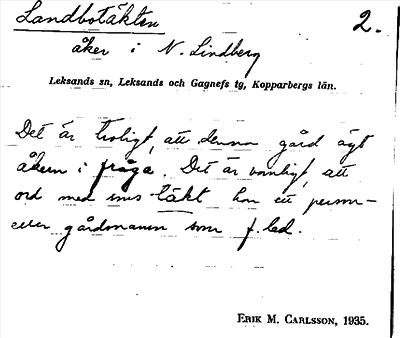 Landbotäkten 2.
åker i N. Lindberg
Leksands sn, Leksands och Gagnefs tg, Kopparbergs län.
Det är troligt, att denna gård ägt
åkern i fråga. Det är vanligt, att
ord med täkt har ett person-
eller gårdsnamn som f.led.
ERIK M. CARLSSON, 1935.